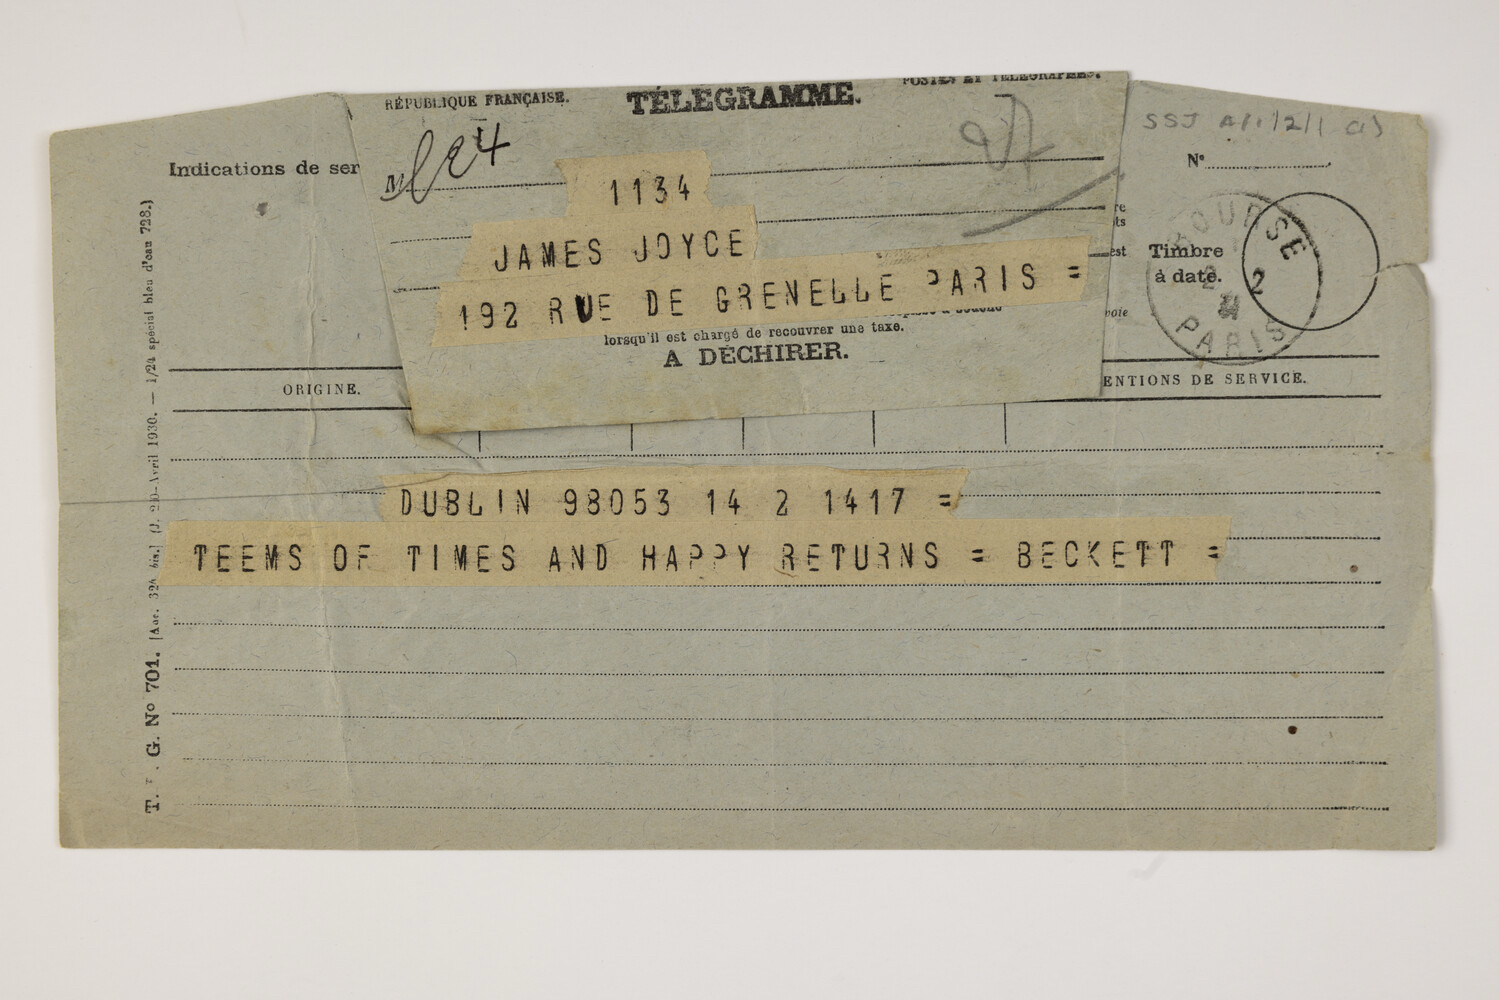 RÉPUBLIQUE FRANÇAISE.
TÉLÉGRAMME.
POSTES ET TÉLÉGRAPHES.
SSJ
Indications de ser
Nº
1134
JAMES JOYCE
192 RUE DE GRENELLE PARIS =
lorsqu'il est chargé de recouvrer une taxe.
A DÉCHIRER.
re
ts
est
voie
Timbre
à date.
BOURSE
2
PARIS
ORIGINE.
ENTIONS DE SERVICE.
DUBLIN 98053 14 2 1417 =
TEEMS OF TIMES AND HAPPY RETURNS = BECKETT =
G. Nº 701.
Avril 1930. — 1/24 spécial bleu d'eau 728.)